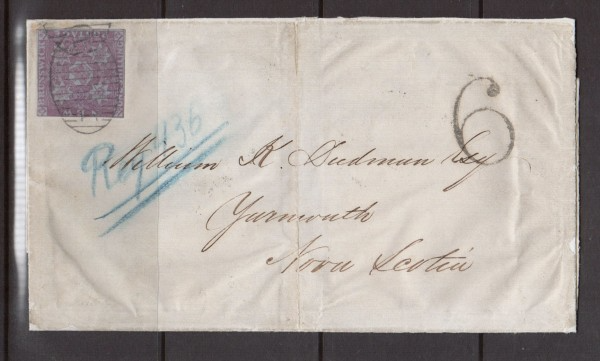 6
Reg 1136
William K. Dudman Esq
Yarmouth
Nova Scotia